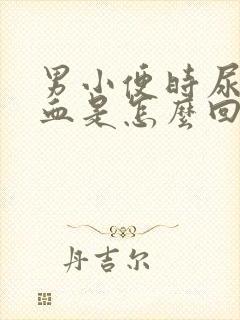 男小便时尿
血是怎麽回
丹吉尔